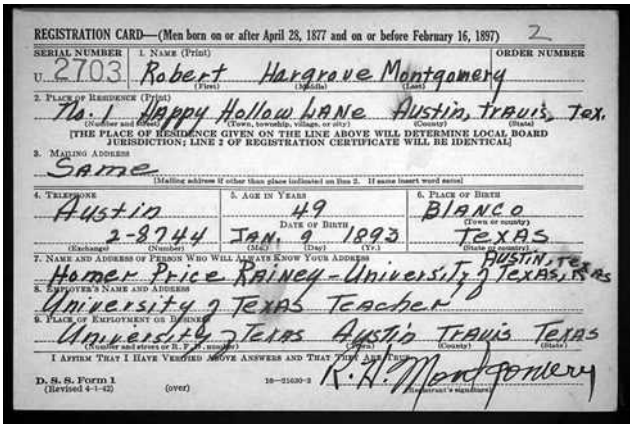 REGISTRATION CARD—(Men born on or after April 28, 1877 and on or before February 16, 1897) 2
SERIAL NUMBER 1. NAME (Print) ORDER NUMBER
U 2703 Robert Hargrove Montgomery
(First) (Middle) (Last)
2. PLACE OF RESIDENCE (Print)
No. 1 Happy Hollow LANE Austin, Travis, Tex.
(Number and street) (Town, township, village, or city) (County) (State)
[THE PLACE OF RESIDENCE GIVEN ON THE LINE ABOVE WILL DETERMINE LOCAL BOARD
JURISDICTION; LINE 2 OF REGISTRATION CERTIFICATE WILL BE IDENTICAL]
3. MAILING ADDRESS
Same
[Mailing address if other than place indicated on line 2. If same insert word same]
4. TELEPHONE 5. AGE IN YEARS 6. PLACE OF BIRTH
Austin 49 BLANCO
DATE OF BIRTH (Town or county)
2-8744 JAN. 9 1893 TEXAS
(Exchange) (Number) (Mo.) (Day) (Yr.) (State or country)
7. NAME AND ADDRESS OF PERSON WHO WILL ALWAYS KNOW YOUR ADDRESS AUSTIN, Tex
Homer Price Rainey - University of Texas,
8. EMPLOYER'S NAME AND ADDRESS
University of Texas Teacher
9. PLACE OF EMPLOYMENT OR BUSINESS
University of Texas Austin Travis Texas
(Number and street or R. F. D. number) (Town) (County) (State)
I AFFIRM THAT I HAVE VERIFIED ABOVE ANSWERS AND THAT THEY ARE TRUE.
R. H. Montgomery
D. S. S. Form 1 16—21630-2 (Registrant's signature)
(Revised 4-1-42) (over)